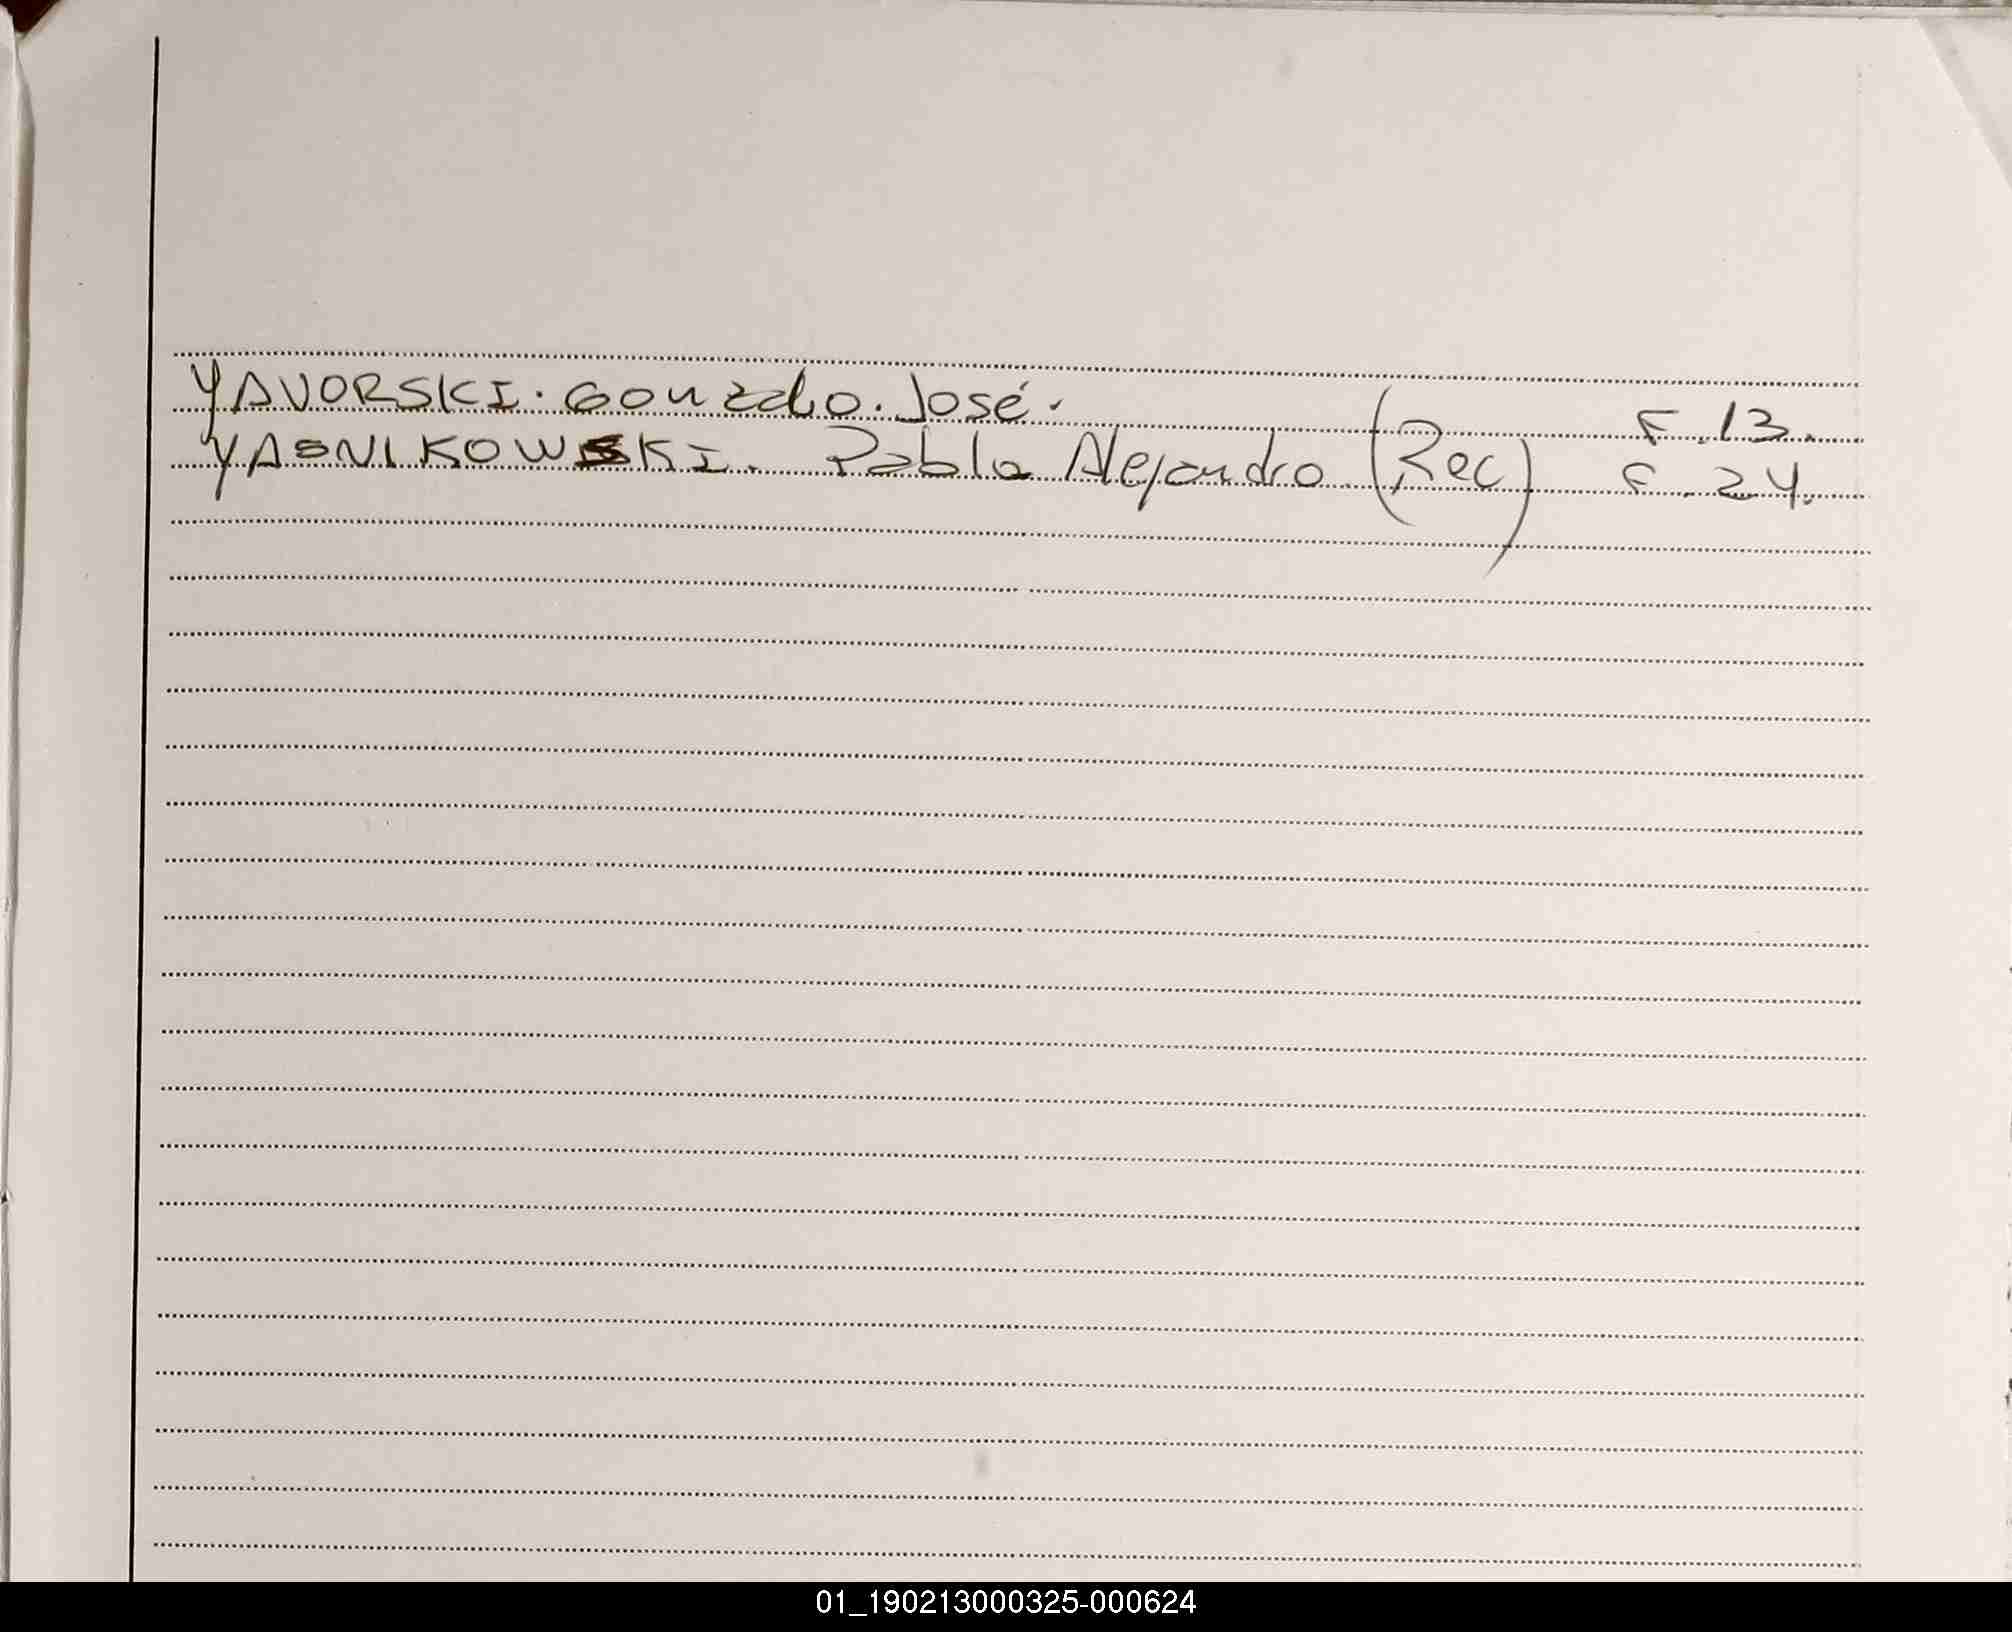 YAVORSKI. Gonzalo. José. F. 13.
YASNIKOWSKI. Pablo Alejandro (Rec) F. 24.
01_190213000325-000624